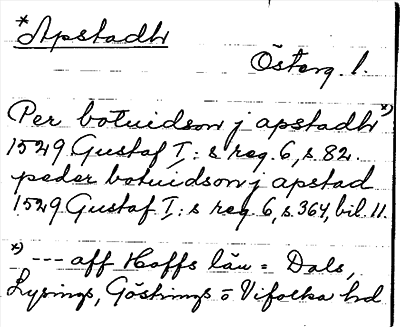 *Apstadh
Österg. l.
Per botuidson j apstadh *)
1529 Gustaf I: s reg. 6, s 82.
peder botuidson j apstad
1529 Gustaf I: s reg 6, s. 364, bil. 11.
*) --- aff Hoffs län = Dals,
Lysings, Göstrings o Vifolka hd